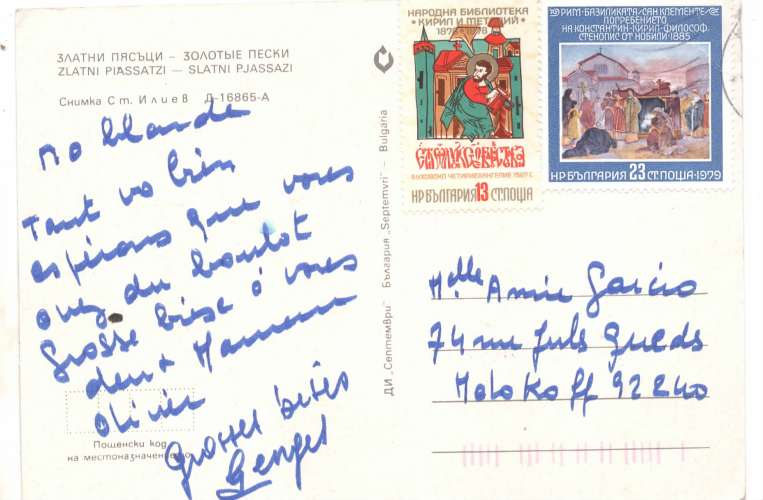 ЗЛАТНИ ПЯСЪЦИ – ЗОЛОТЫЕ ПЕСКИ
ZLATNI PIASSATZI — SLATNI PJASSAZI
Снимка Ст. Илиев Д-16865-А
ma blonde
Tout va bien
espérons que vous
avez du boulot
Grosse bise à vous
deux Maman
Olivier
grosses bises
Georges
Пощенски код
на местоназначението
ДИ „Септември" – България „Septemvri" – Bulgaria
НАРОДНА БИБЛИОТЕКА
КИРИЛ И МЕТОДИЙ
1878 1978
ЧЕТИРИЕВАНГЕЛИЕ
НР БЪЛГАРИЯ 13 СТ. ПОЩА
РИМ-БАЗИЛИКАТА/САН КЛЕМЕНТЕ/
ПОГРЕБЕНИЕТО
НА КОНСТАНТИН-КИРИЛ-ФИЛОСОФ.
СТЕНОПИС ОТ НОБИЛИ-1885
НР БЪЛГАРИЯ 23 СТ. ПОЩА-1979
Melle Annie Garcia
74 rue Jules Guesde
Malakoff 92240